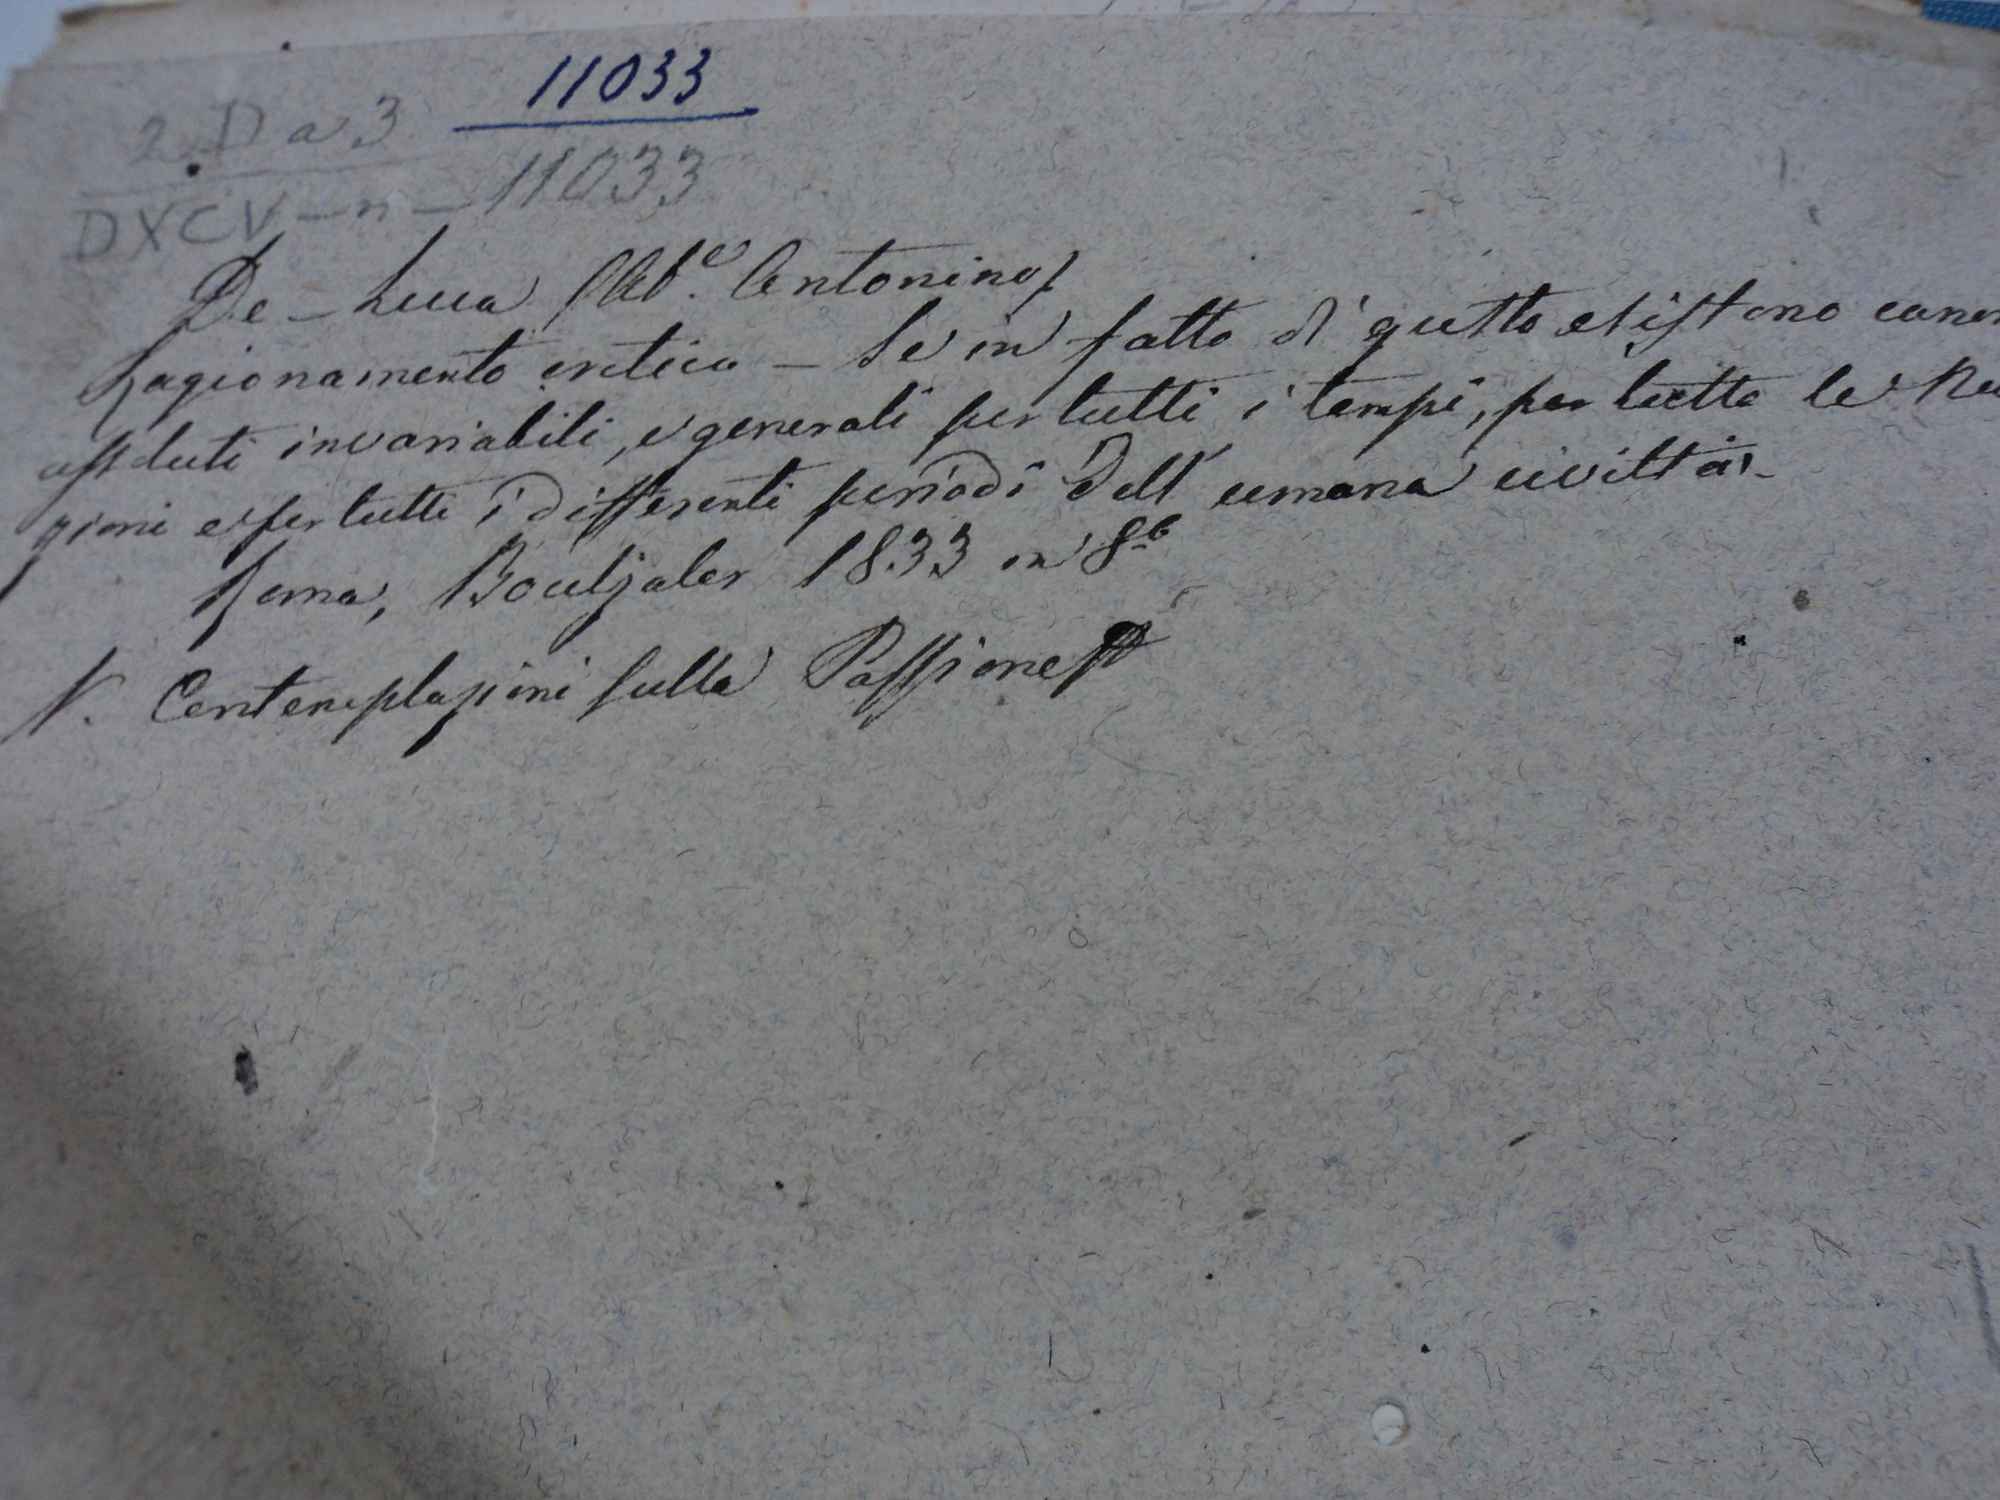 11033
2 D a 3
DXCV-n-11033
De-Luca (Ab.e Antonino)
Ragionamento critico - Se in fatto di gusto esistono canon
assoluti invariabili, e generali per tutti i tempi, per tutte le Na
zioni e per tutti i differenti periodi dell' umana civiltà.
Roma, Boulzaler 1833 in 8.o
V. Contemplazioni sulla Passione